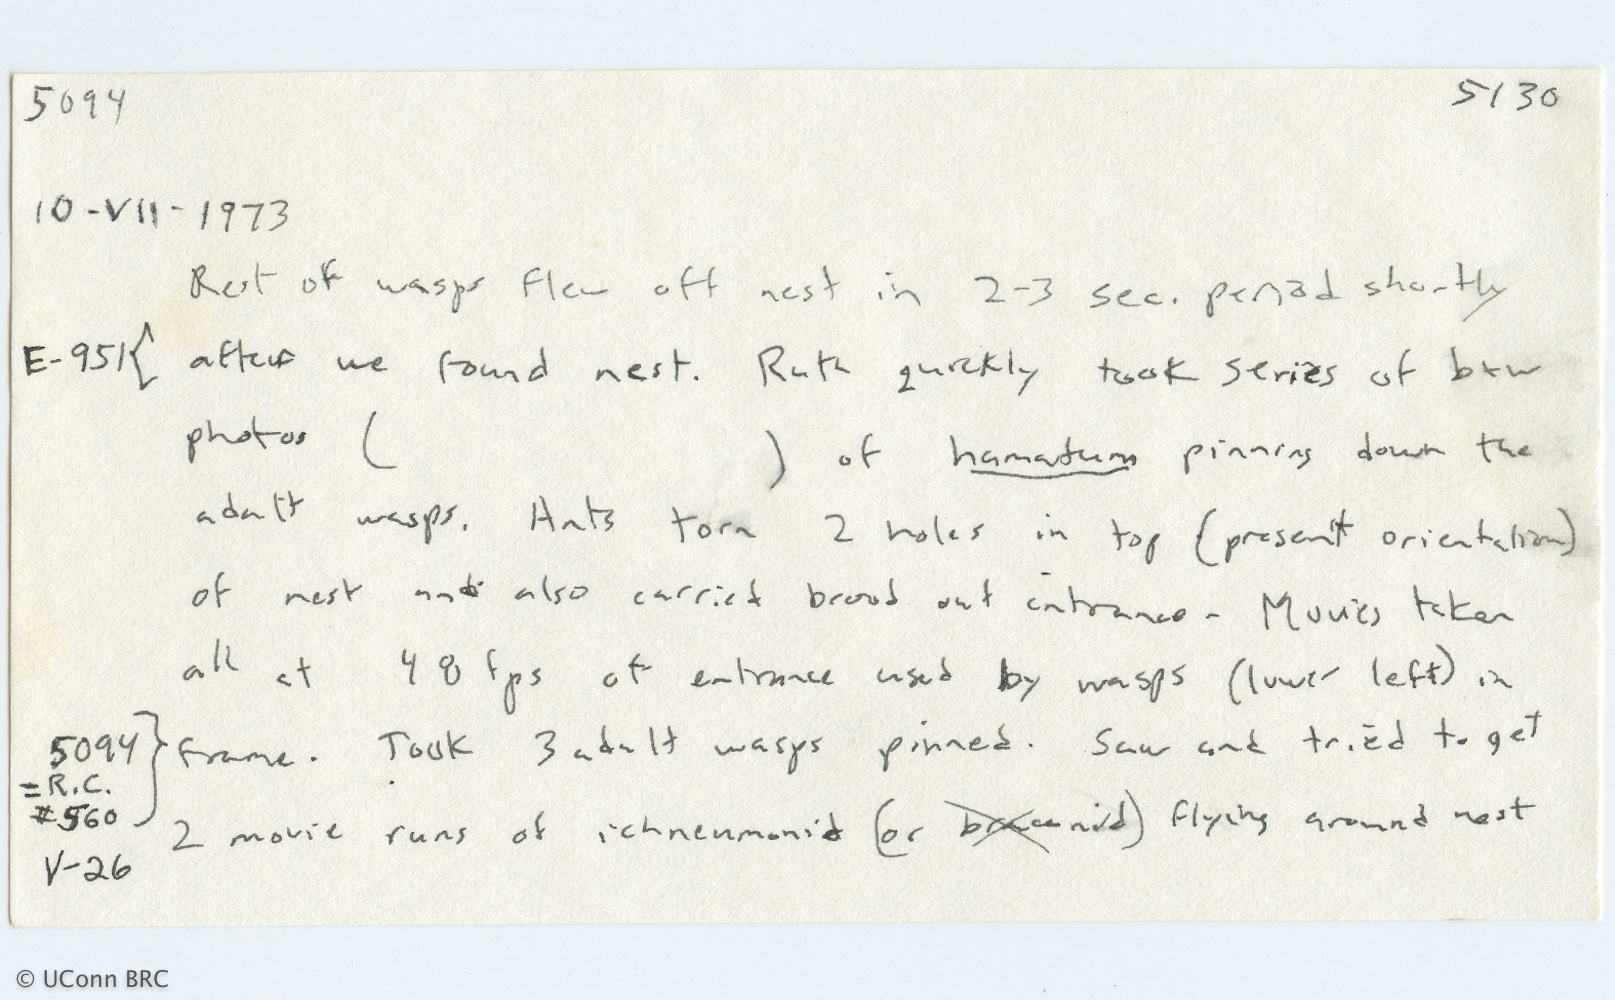 5094 5130
10-VII-1973
Rest of wasps flew off nest in 2-3 sec. period shortly
E-951{ after we found nest. Ruth quickly took series of b+w
photos ( ) of hamatum pinning down the
adult wasps. Ants torn 2 holes in top (present orientation)
of nest and also carried brood out entrance - Movies taken
all at 48 fps of entrance used by wasps (lower left) in
5094 } frame. Took 3 adult wasps pinned. Saw and tried to get
= R.C.
#560
2 movie runs of ichneumonid (or braconid) flying around nest
V-26
© UConn BRC